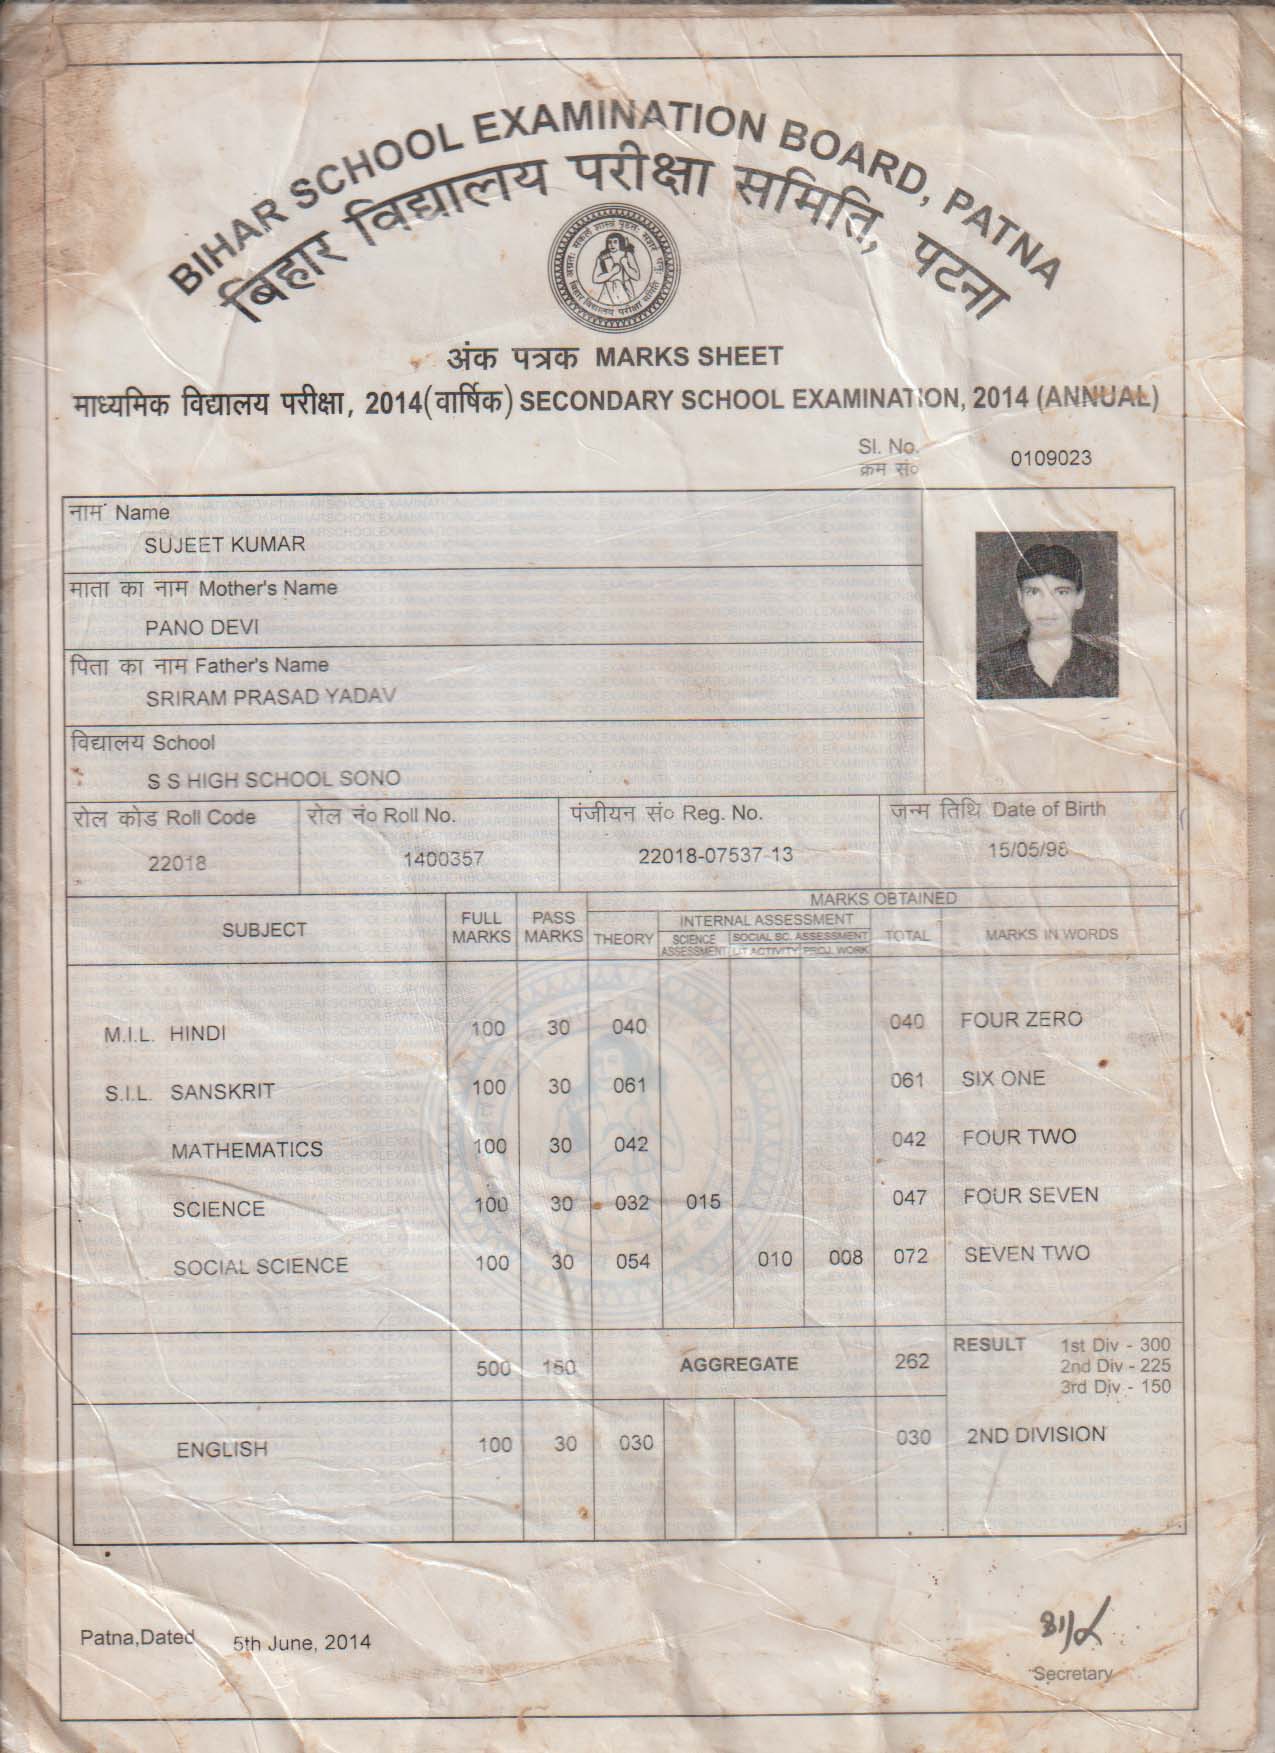 BIHAR SCHOOL EXAMINATION BOARD, PATNA
बिहार विद्यालय परीक्षा समिति, पटना
अंक पत्रक MARKS SHEET
माध्यमिक विद्यालय परीक्षा, 2014(वार्षिक) SECONDARY SCHOOL EXAMINATION, 2014 (ANNUAL)
Sl. No. 0109023
क्रम सं०
नाम Name
SUJEET KUMAR
माता का नाम Mother's Name
PANO DEVI
पिता का नाम Father's Name
SRIRAM PRASAD YADAV
विद्यालय School
S S HIGH SCHOOL SONO
रोल कोड Roll Code रोल नं० Roll No. पंजीयन सं० Reg. No. जन्म तिथि Date of Birth
22018 1400357 22018-07537-13 15/05/98
MARKS OBTAINED
SUBJECT FULL MARKS PASS MARKS THEORY INTERNAL ASSESSMENT TOTAL MARKS IN WORDS
SCIENCE ASSESSMENT SOCIAL SC. ASSESSMENT
LIT ACTIVITY PROJ. WORK
M.I.L. HINDI 100 30 040 040 FOUR ZERO
S.I.L. SANSKRIT 100 30 061 061 SIX ONE
MATHEMATICS 100 30 042 042 FOUR TWO
SCIENCE 100 30 032 015 047 FOUR SEVEN
SOCIAL SCIENCE 100 30 054 010 008 072 SEVEN TWO
500 150 AGGREGATE 262 RESULT 1st Div - 300
2nd Div - 225
3rd Div - 150
ENGLISH 100 30 030 030 2ND DIVISION
Patna,Dated 5th June, 2014
Secretary